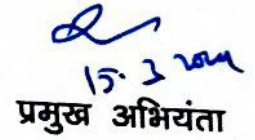 15.3.2024
प्रमुख अभियंता